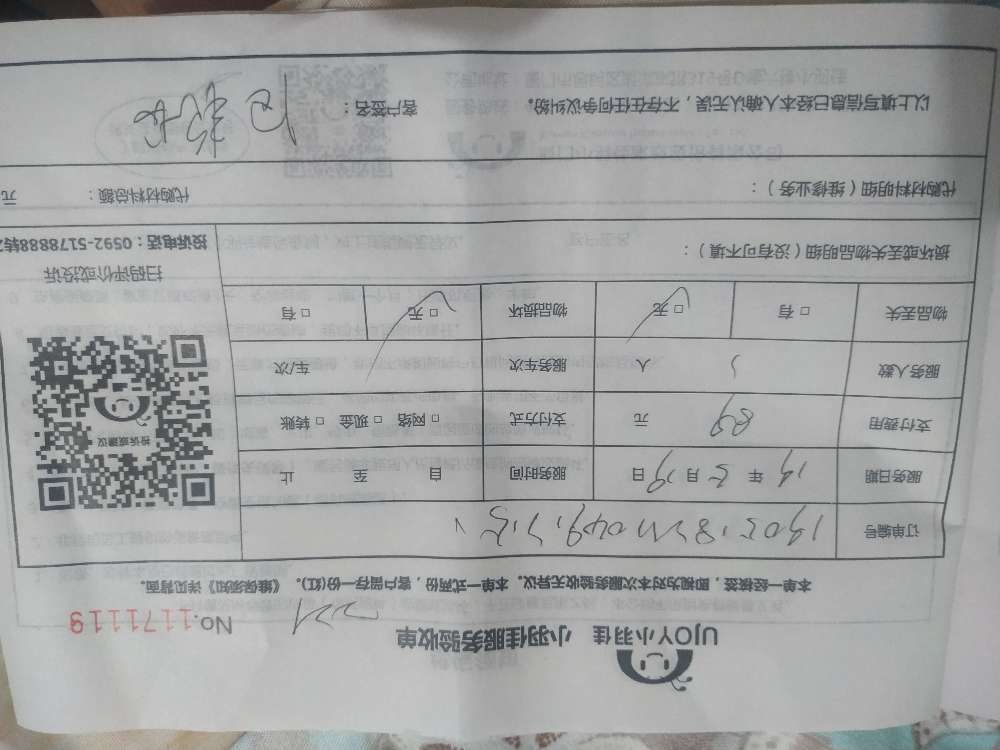 UJOY小羽佳 小羽佳服务验收单
No.1171119
本单一经签接，即视为对本次服务验收无异议。本单一式两份，客户留存一份(红)。《维保须知》详见背面。
订单编号
服务日期 19 年 5 月 19 日 服务时间 自 至 止
支付费用 89 元 支付方式 □ 网络 □ 现金 □ 转账
服务人数 1 人 服务车次 车/次
物品丢失 □ 有 □ 无 物品损坏 □ 无 □ 有
投诉或建议
扫码评价或投诉
投诉电话：0592-5178888转2
损坏或丢失物品明细（没有可不填）：
代购材料明细（维修业务）： 代购材料总额： 元
以上填写信息已经本人确认无误，不存在任何争议纠纷。 客户签名：